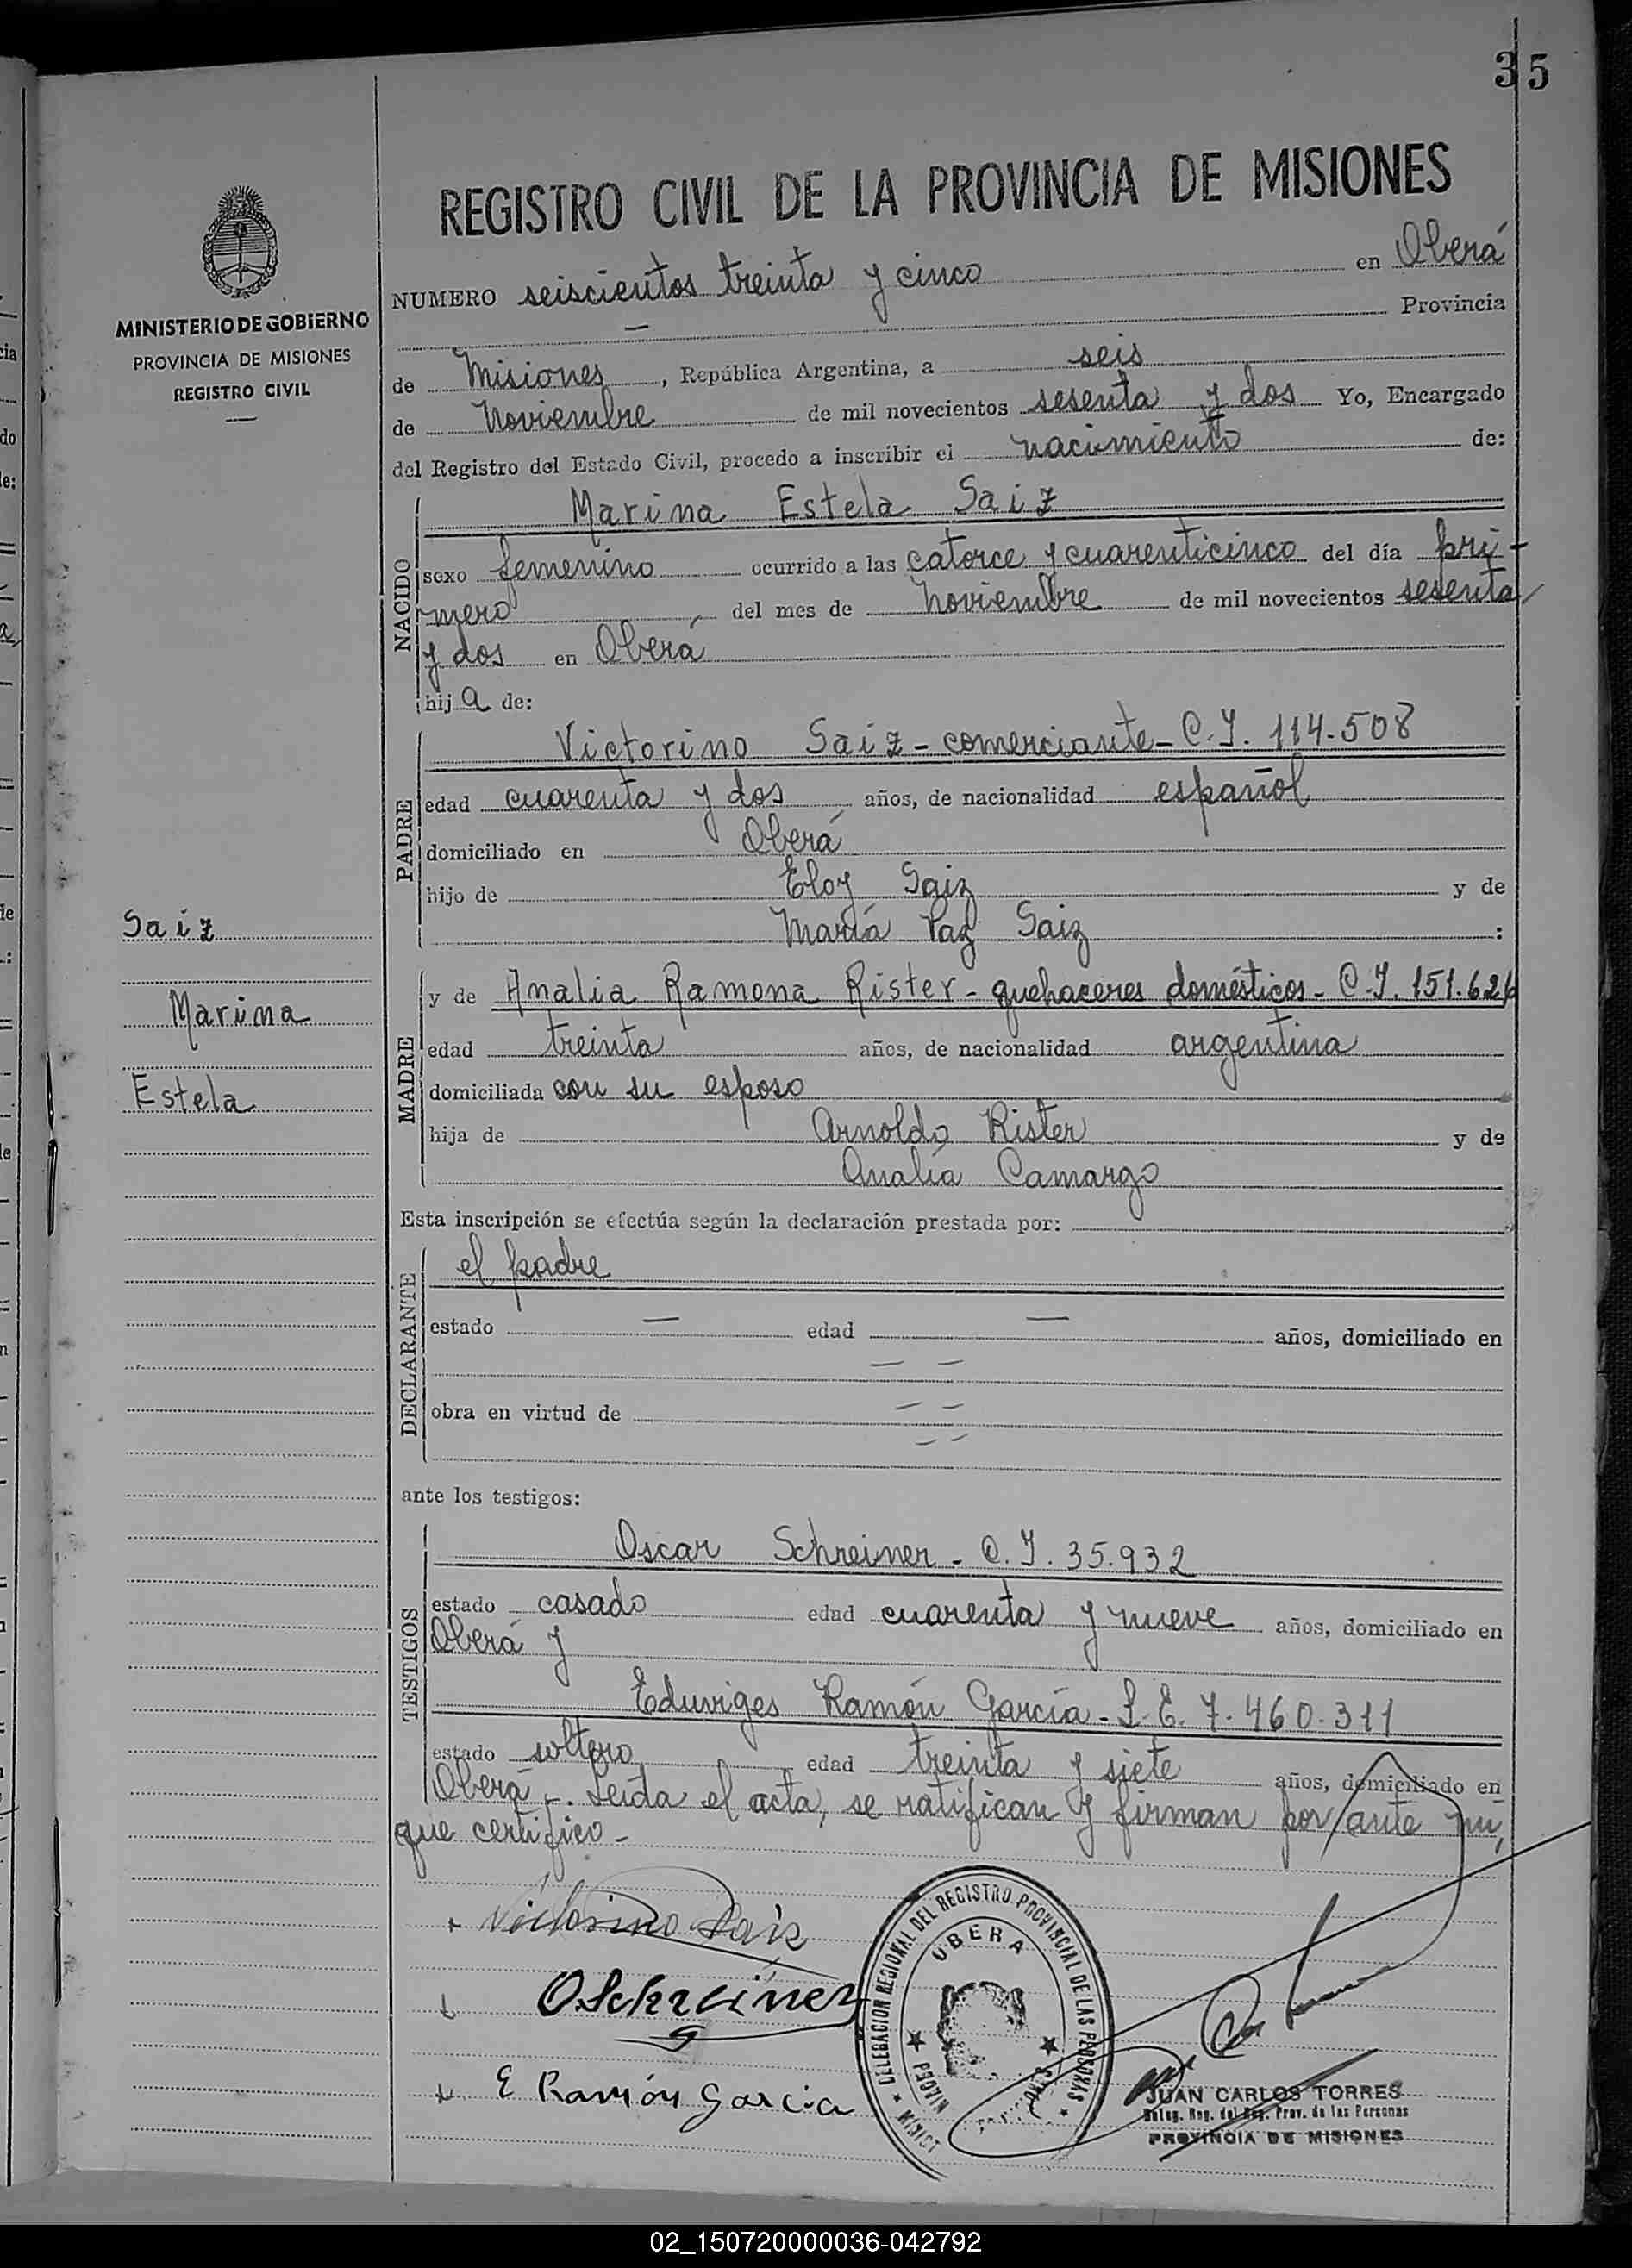 35
REGISTRO CIVIL DE LA PROVINCIA DE MISIONES
MINISTERIO DE GOBIERNO
PROVINCIA DE MISIONES
REGISTRO CIVIL
NUMERO seiscientos treinta y cinco en Oberá
— Provincia
de Misiones, República Argentina, a seis
de Noviembre de mil novecientos sesenta y dos Yo, Encargado
del Registro del Estado Civil, procedo a inscribir el nacimiento de:
NACIDO
Marina Estela Saiz
sexo femenino ocurrido a las catorce y cuarenticinco del día pri-
mero del mes de Noviembre de mil novecientos sesenta
y dos en Oberá
hija de:
PADRE
Victorino Saiz - comerciante - C.I. 114.508
edad cuarenta y dos años, de nacionalidad español
domiciliado en Oberá
hijo de Eloy Saiz y de
María Paz Saiz :
Saiz
Marina
Estela
MADRE
y de Analia Ramona Rister - quehaceres domésticos - C.I. 151.626
edad treinta años, de nacionalidad argentina
domiciliada con su esposo
hija de Arnoldo Rister y de
Analía Camargo
Esta inscripción se efectúa según la declaración prestada por:
DECLARANTE
el padre
estado — edad — años, domiciliado en
— —
obra en virtud de — —
— —
ante los testigos:
TESTIGOS
Oscar Schreiner - C.I. 35.932
estado casado edad cuarenta y nueve años, domiciliado en
Oberá y
Eduviges Ramón García - L.E. 7.460.311
estado soltero edad treinta y siete años, domiciliado en
Oberá -. Leída el acta, se ratifican y firman por ante mí,
que certifico -
Victorino Saiz
O Schreiner
E Ramón Garcia
DELEGACION REGIONAL DEL REGISTRO PROVINCIAL DE LAS PERSONAS
OBERA
JUAN CARLOS TORRES
Deleg. Reg. del Reg. Prov. de las Personas
PROVINCIA DE MISIONES
02_150720000036-042792